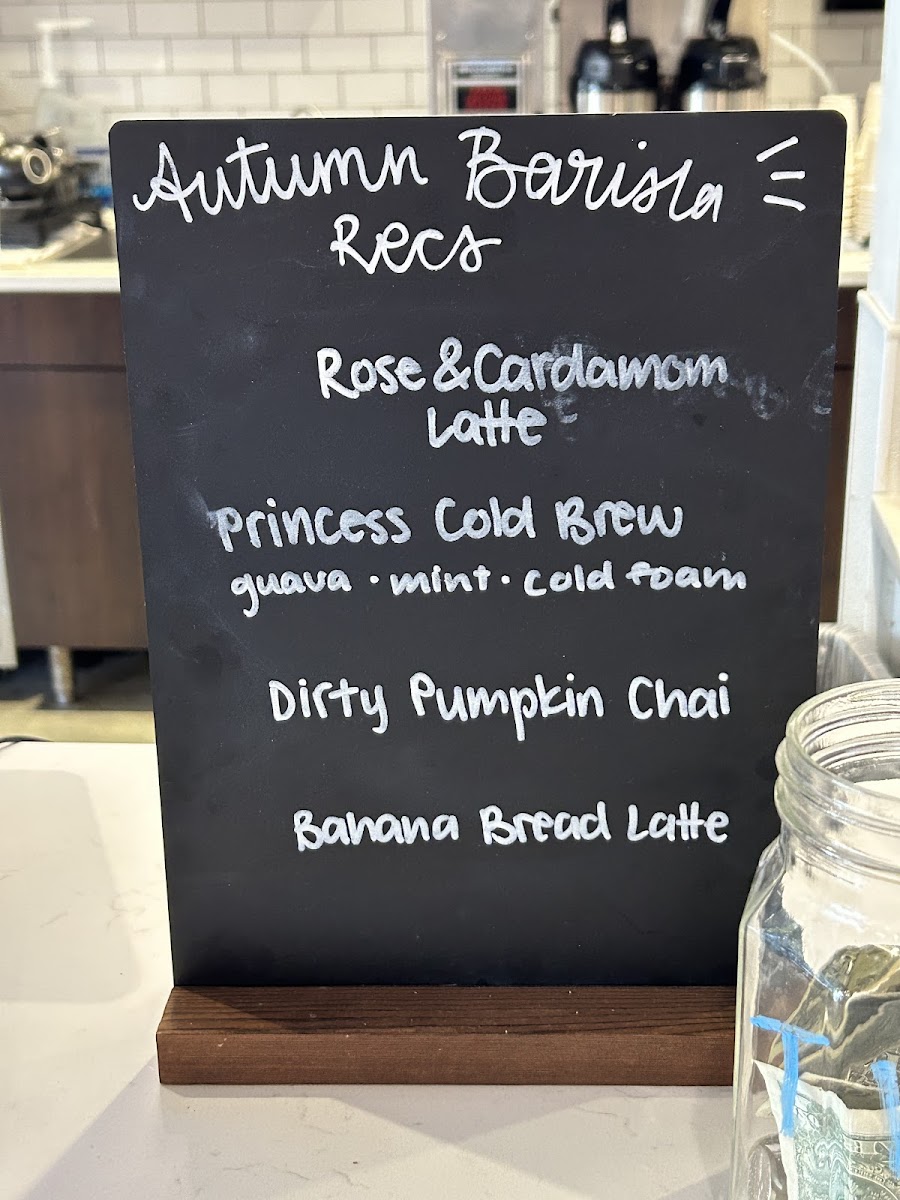 Autumn Barista
Recs
Rose & Cardamom
Latte
Princess Cold Brew
guava · mint · cold foam
Dirty Pumpkin Chai
Banana Bread Latte